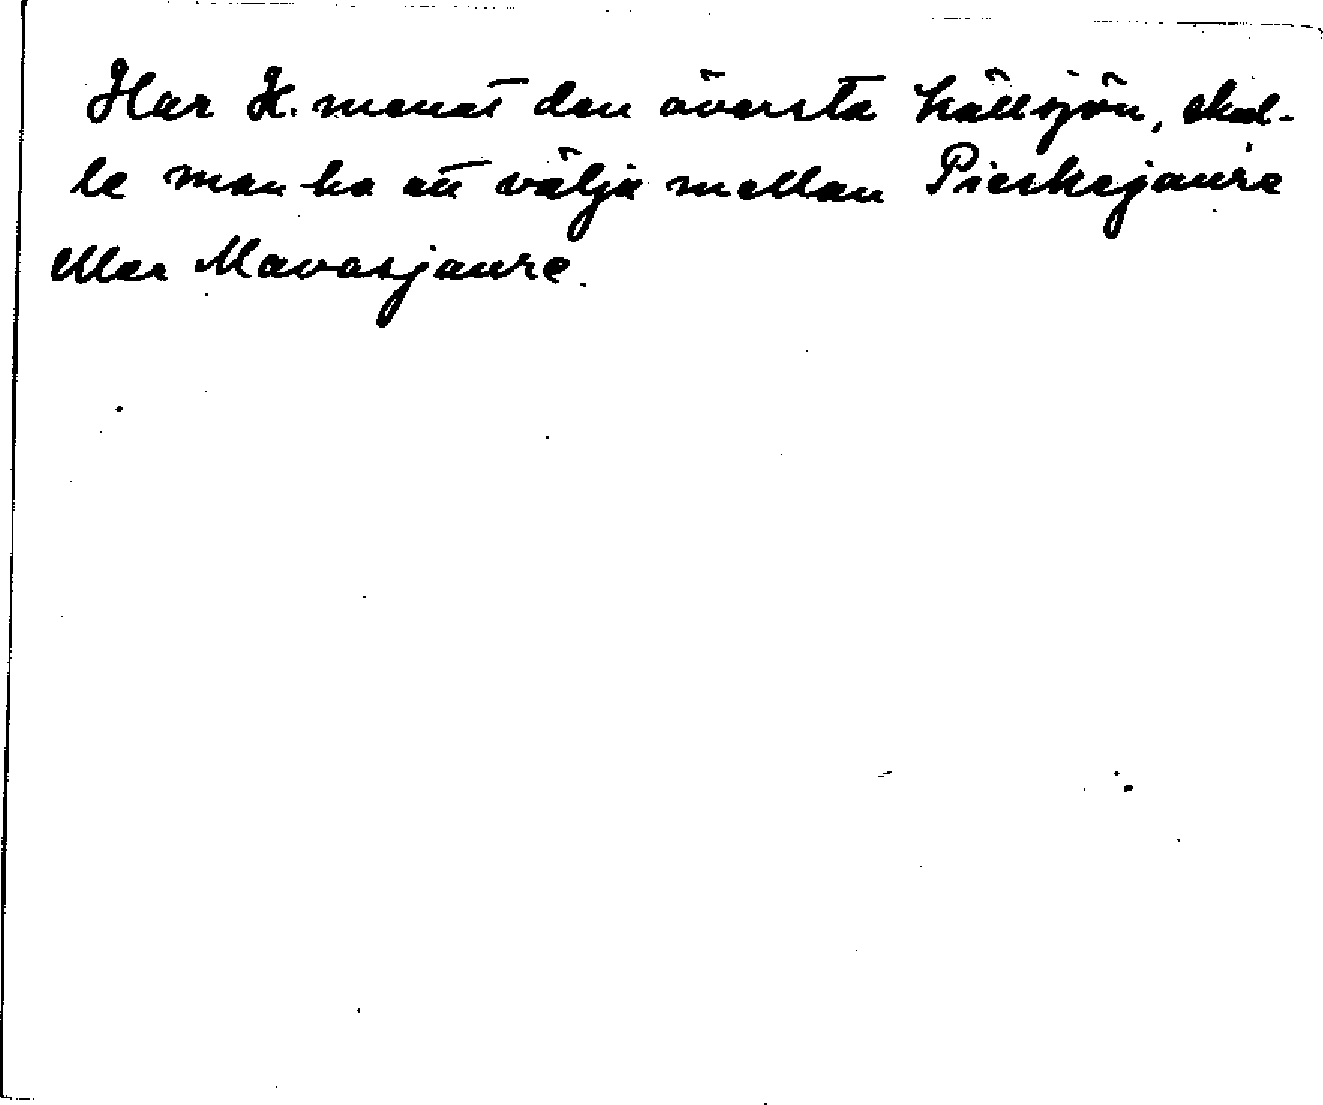 Har K. menat den översta källsjön, skul-
le man ha att välja mellan Pieskejaure
eller Mavasjaure.